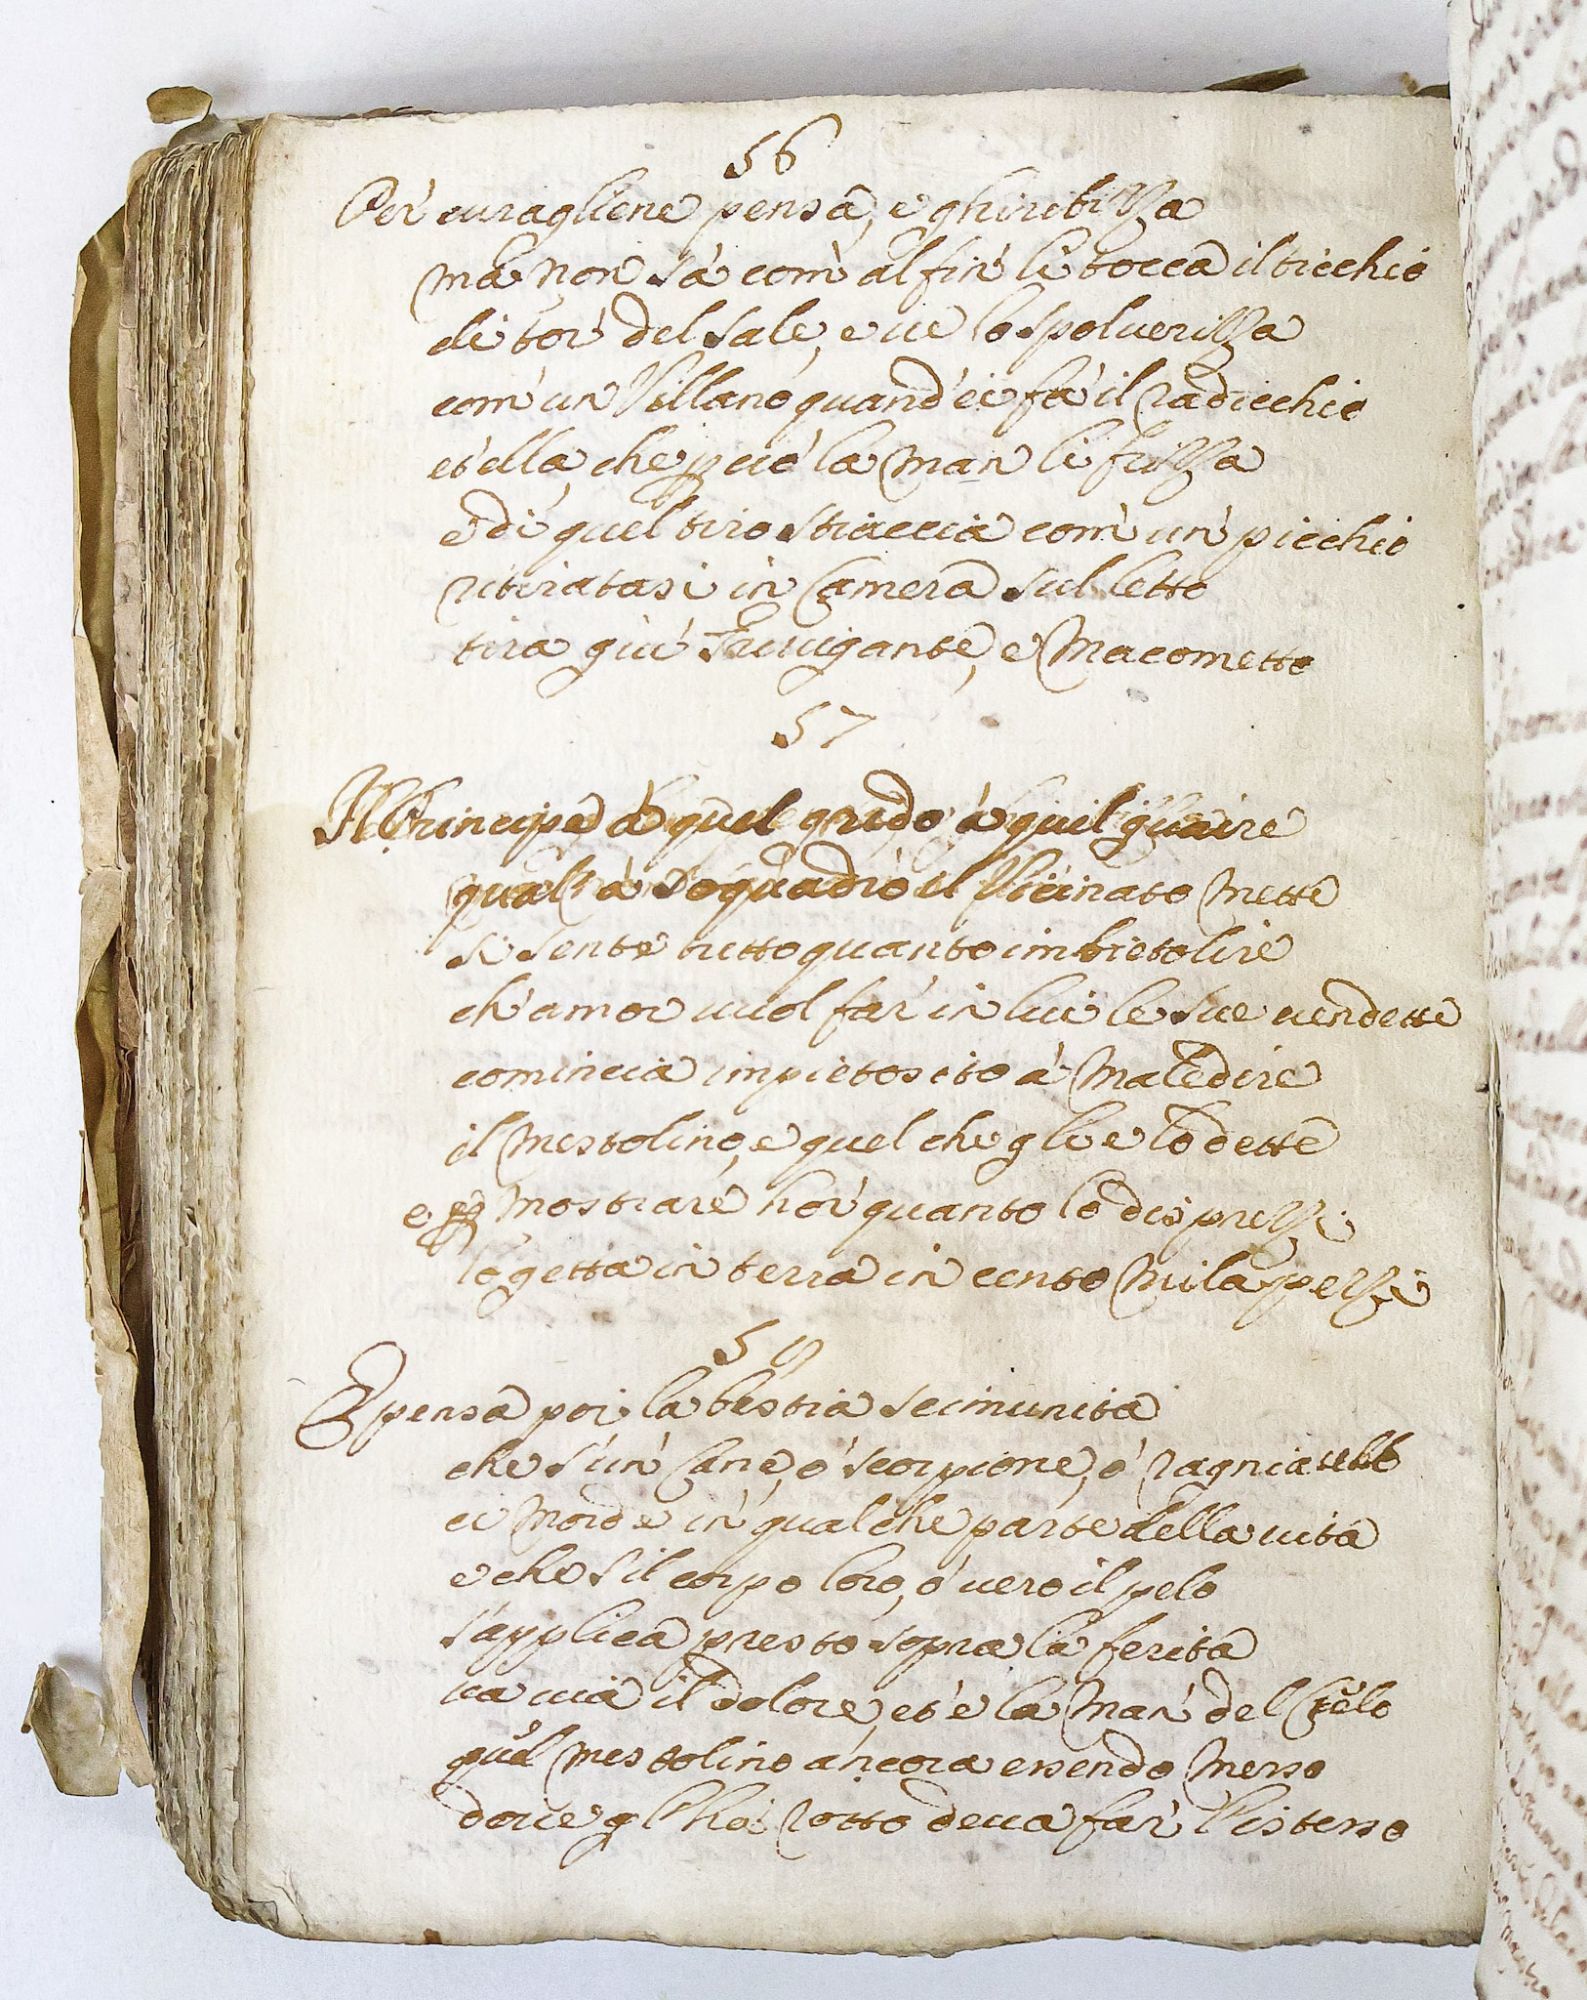 56
Per curagliene pensa, e ghiribizza
ma non sà com' al fin li tocca il ticchio
di tor' del sale, e ve lo spolverizza
com' un Villano quand' ei fà il radicchio
et ella, che però la man li frizza
e di quel tiro stiaccia com' un picchio
ritiratasi in Camera sul letto
tira giù Trivigante, e Macometto
57
Il Principe à quel grido à quel guaire
qual' à soquadro il Vicinato mette
si sente tutto quanto imbietolire
ch' amor vuol far' in lui le sue vendette
comincia impietosito à maledire
il mestolino, e quel che gli e lo dette
e p mostrare hor' quanto lo disprezzi
lo getta in terra in cento mila pezzi
58
E pensa poi la bestia scimunita
che s' un' Cane, ò scorpione, ò ragniatello
ci morde in qualche parte della vita
e che s' il corpo loro, ò vero il pelo
s' applica presto sopra la ferita
va via il dolore, et è la man' del Cielo
quel mestolino ancora essendo messo
dove gl' ha rotto deva far' l' istesso